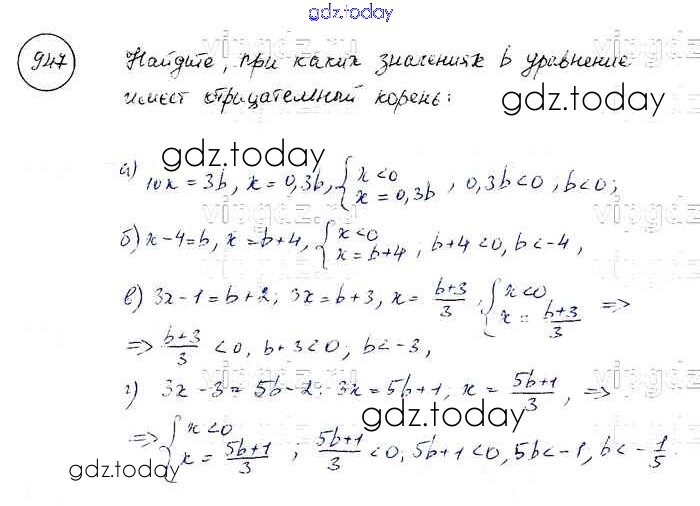 gdz.today
947 Найдите, при каких значениях b уравнение
имеет отрицательный корень:
gdz.today
gdz.today
а) 10x = 3b, x = 0,3b, { x < 0 x = 0,3b , 0,3b < 0, b < 0;
б) x - 4 = b, x = b + 4, { x < 0 x = b + 4 , b + 4 < 0, b < -4,
в) 3x - 1 = b + 2; 3x = b + 3, x = (b+3)/3 , { x < 0 x = (b+3)/3 =>
=> (b+3)/3 < 0, b + 3 < 0; b < -3,
г) 3x - 3 = 5b - 2; 3x = 5b + 1, x = (5b+1)/3 , =>
gdz.today
=> { x < 0 x = (5b+1)/3 ; (5b+1)/3 < 0, 5b + 1 < 0, 5b < -1, b < -1/5.
gdz.today
gdz.today